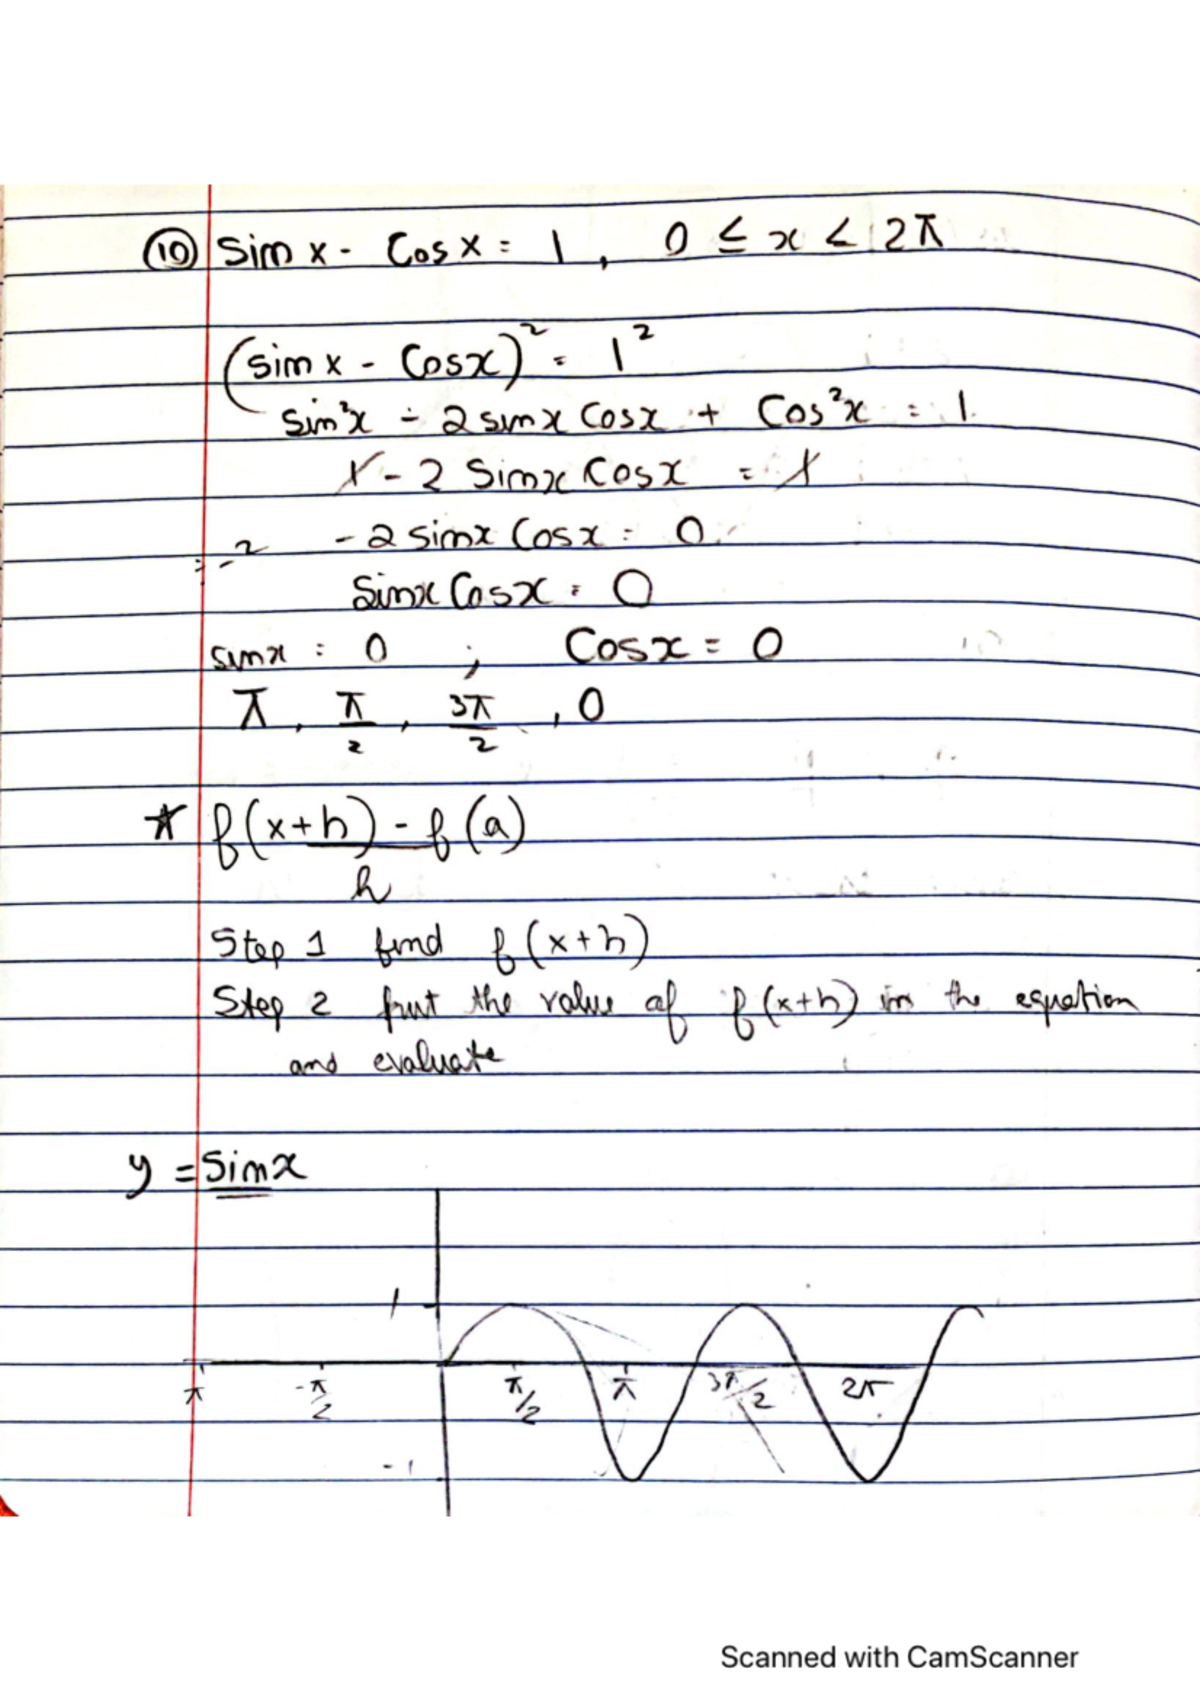 ⑩ Sin x - Cos x = 1 , 0 ≤ x < 2π
(sin x - Cosx)² = 1²
sin²x - 2 sinx Cosx + Cos²x = 1
1 - 2 Sinx Cosx = 1
÷ -2 - 2 sinx Cosx = 0
Sinx Cosx = 0
sinx = 0 ; Cosx = 0
π , π/2 , 3π/2 , 0
* f(x+h) - f(a)
h
Step 1 find f(x+h)
Step 2 put the value of f(x+h) in the equation
and evaluate
y = Sinx
1
π -π/2 π/2 π 3π/2 2π
-1
Scanned with CamScanner